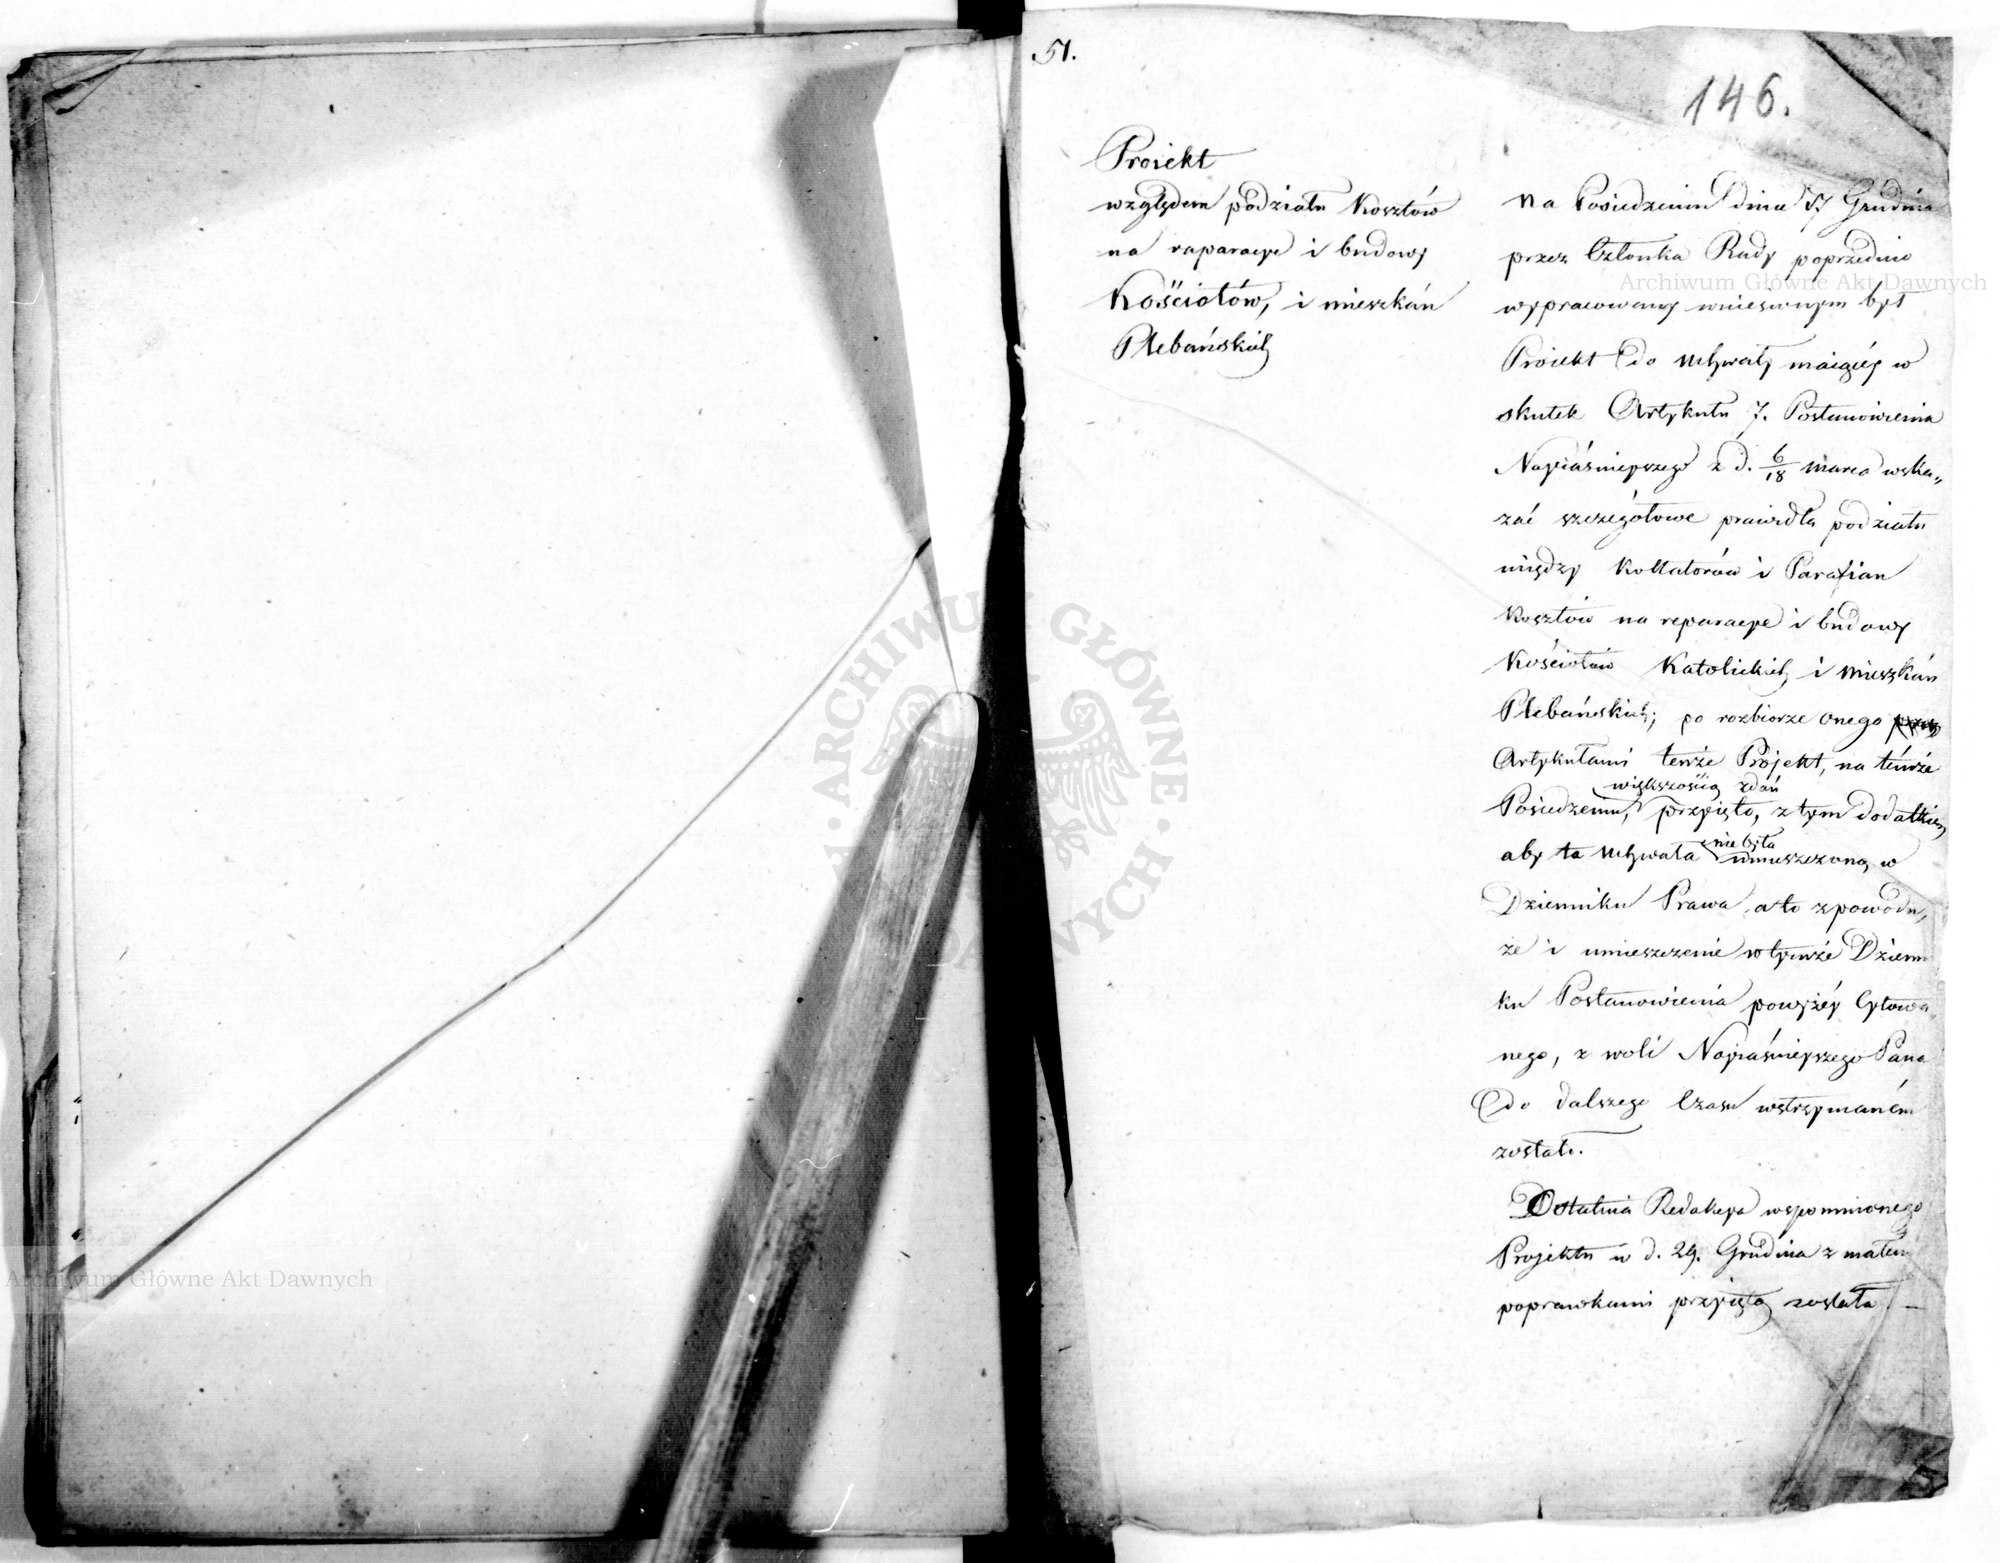 51.
146.
Proiekt
względem podziału Kosztów
na raparacye i budowy
Kościołów, i mieszkań
Plebańskich
na Posiedzeniu dnia 17 Grudnia
przez Członka Rady poprzednio
wypracowany wniesionym był
Proiekt do uchwały maiącéy w
skutek Artykułu 7. Postanowienia
Nayiaśnieyszego z d. 6/18 marca wska„
zać szczegółowe prawidła podziału
między Kollatorów i Parafian
Kosztów na reparacye i budowy
Kościołów Katolickich i mieszkań
Plebańskich; po rozbiorze onego
Artykułami tenże Projekt, na témże
większością zdań
Posiedzeniu, przyięto, z tym dodatkiem
nie była
aby ta uchwała umieszczoną w
Dzienniku Prawa, a to z powodu,
że i umieszczenie w tymże Dzienni
ku Postanowienia powyżéy Cytowa„
nego, z woli Nayiaśnieyszego Pana
do dalszego Czasu wstrzymaném
zostało.
Ostatnia Redakcya wspomnionego
Projektu w d. 29. Grudnia z małemi
poprawkami przyiętą została. —
Archiwum Główne Akt Dawnych
Archiwum Główne Akt Dawnych
ARCHIWUM GŁÓWNE AKT DAWNYCH